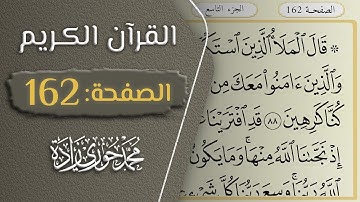 القرآن الكريم
الصفحة: 162
محمد حوري زادة
الصفحة 162
الجزء التاسع
۞ قَالَ ٱلْمَلَأُ ٱلَّذِينَ ٱسْتَكْ
وَٱلَّذِينَ ءَامَنُوا۟ مَعَكَ مِن
كُنَّا كَٰرِهِينَ ٨٨ قَدِ ٱفْتَرَيْنَا
إِذْ نَجَّىٰنَا ٱللَّهُ مِنْهَا ۚ وَمَا يَكُونُ
ٱللَّهُ رَبُّنَا ۚ وَسِعَ رَبُّنَا كُلَّ شَىْءٍ